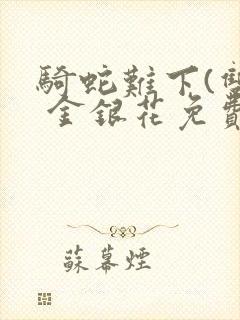 騎蛇難下(雙
金銀花免費
蘇幕煙